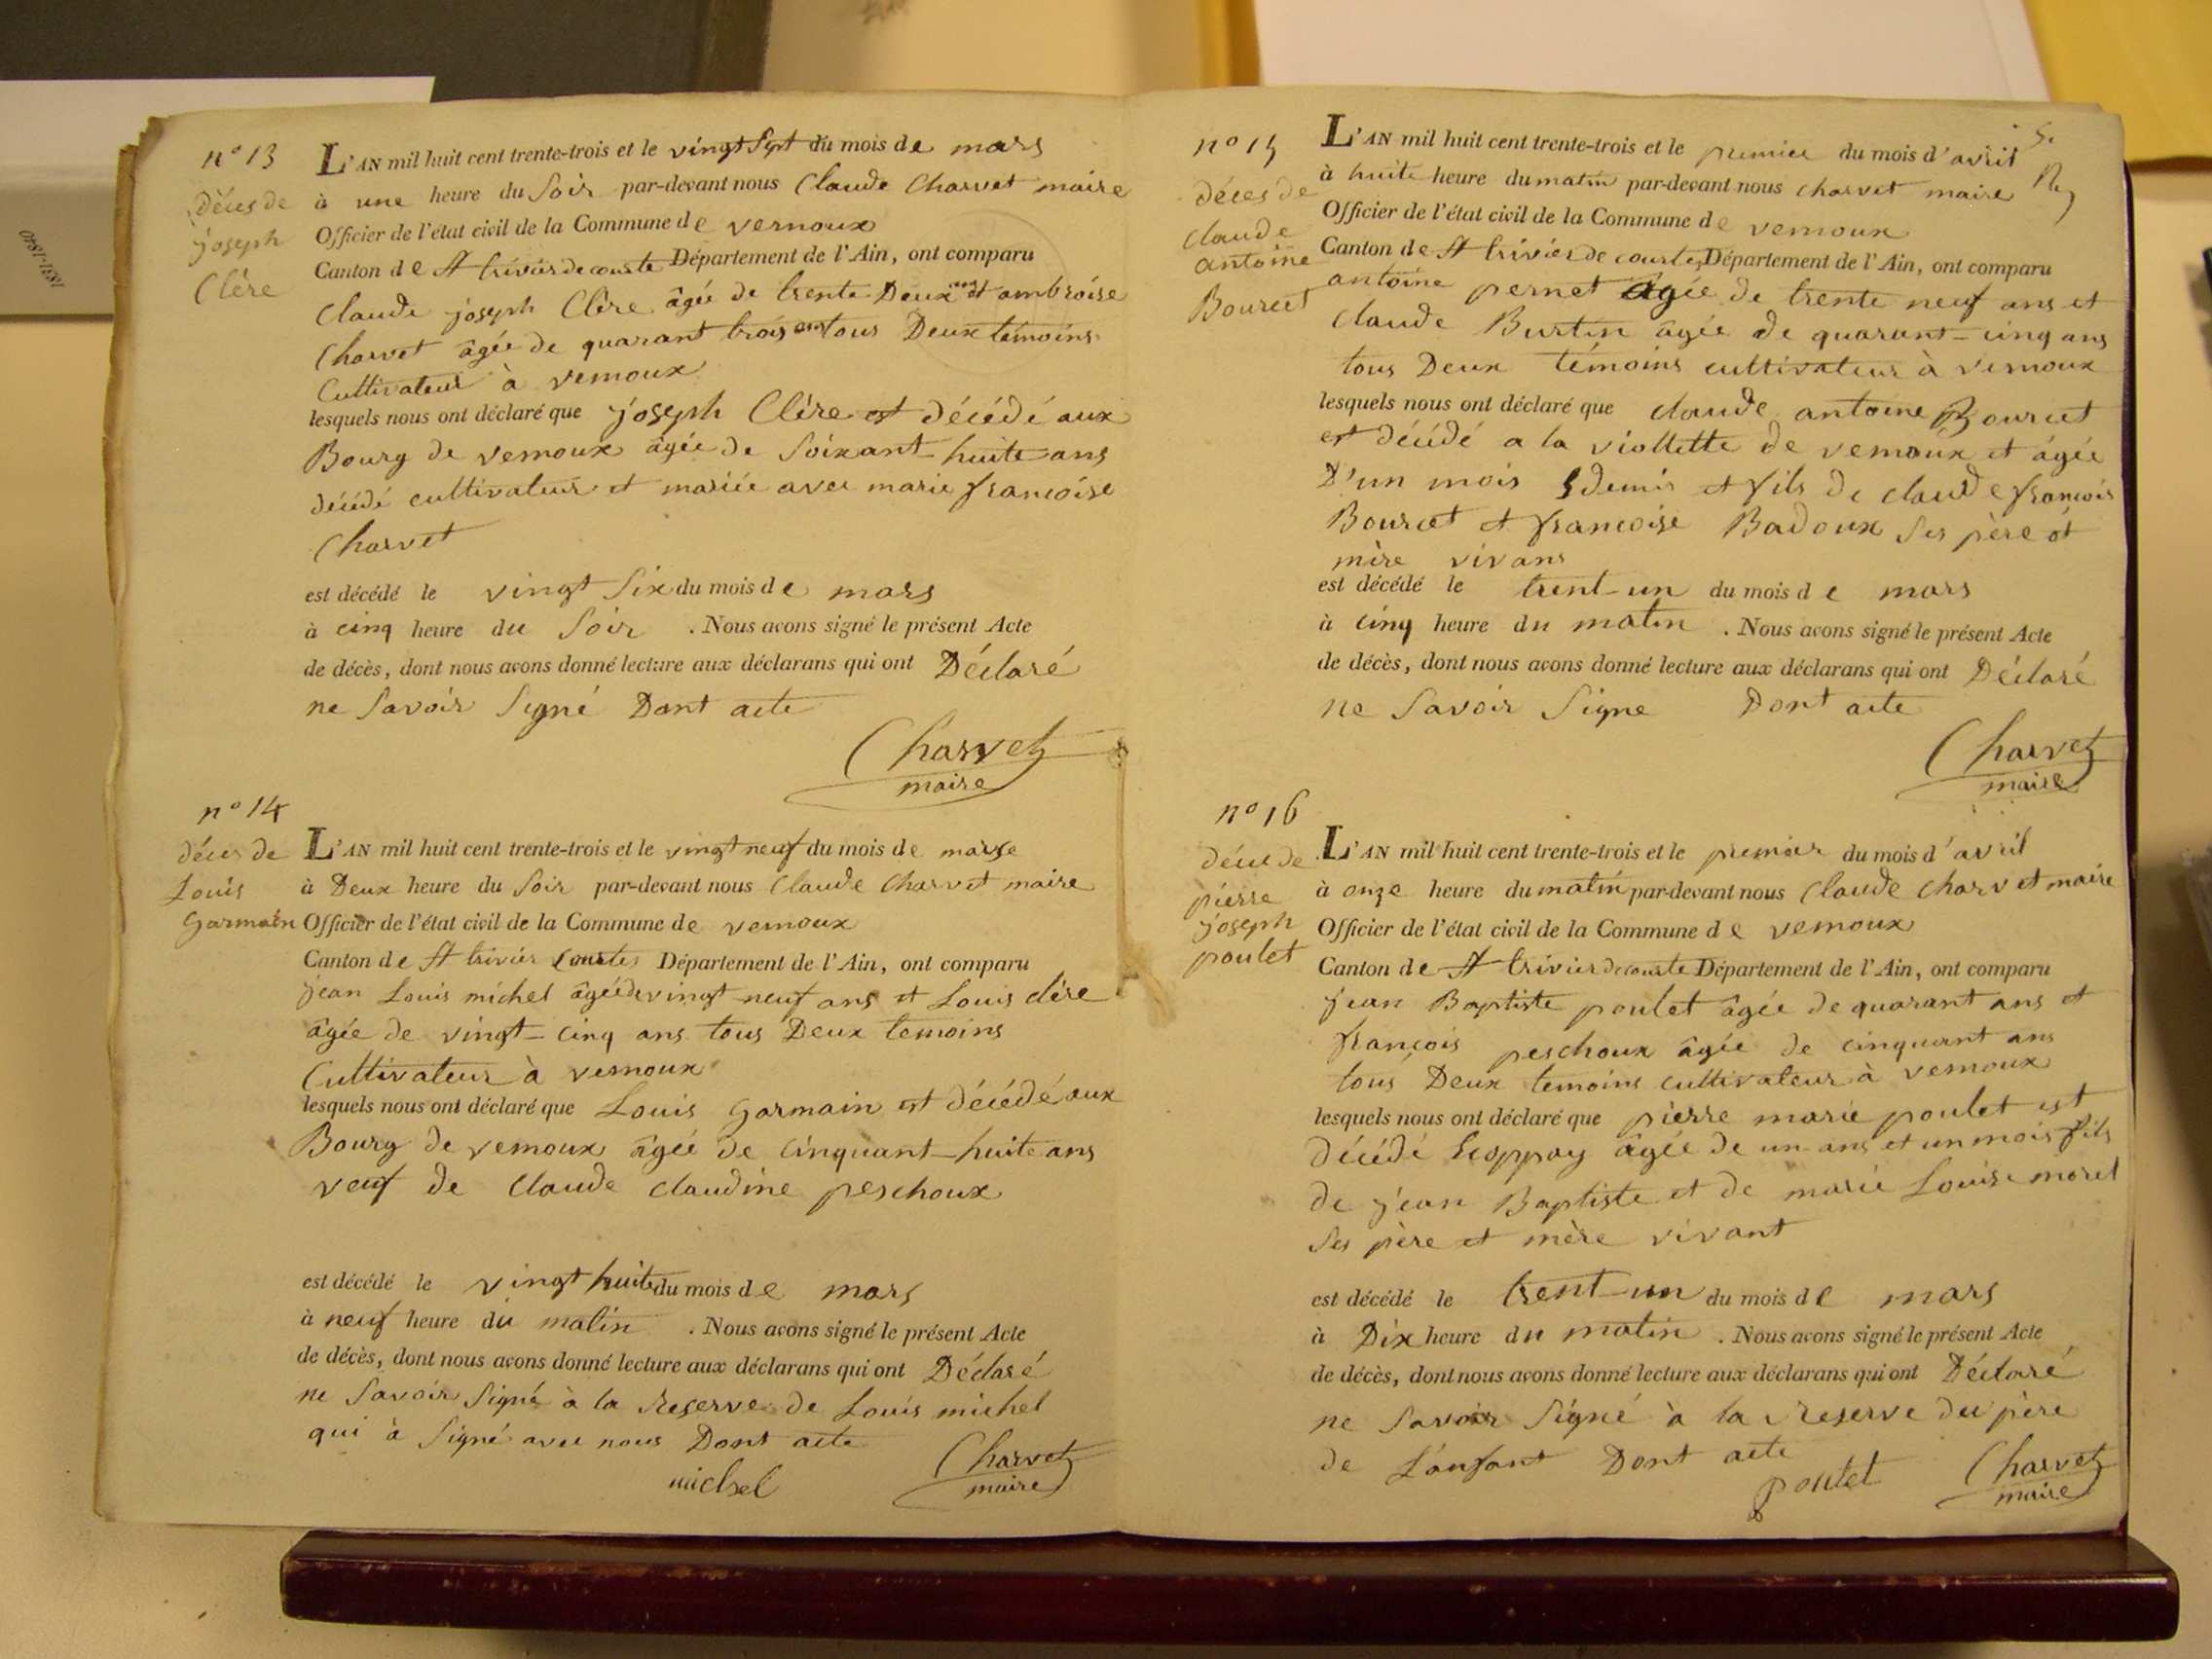 1831-1840
n° 13
décès de
joseph
Clère
L'AN mil huit cent trente-trois et le vingt Sept du mois de mars
à une heure du Soir par-devant nous Claude Charvet maire
Officier de l'état civil de la Commune de vernoux
Canton de St trivier de courte Département de l'Ain, ont comparu
Claude joseph Clère âgée de trente Deux ans et ambroise
Charvet âgée de quarant trois ans tous Deux témoins
Cultivateur à vernoux
lesquels nous ont déclaré que joseph Clère est décédé aux
Bourg de vernoux âgée de Soixant-huite ans
décédé cultivateur et mariée avec marie françoise
Charvet
est décédé le vingt Six du mois de mars
à cinq heure du Soir . Nous avons signé le présent Acte
de décès, dont nous avons donné lecture aux déclarans qui ont Déclaré
ne Savoir Signé Dont acte
Charvet
maire
n° 14
décès de
Louis
Garmain
L'AN mil huit cent trente-trois et le vingt neuf du mois de marse
à Deux heure du Soir par-devant nous Claude Charvet maire
Officier de l'état civil de la Commune de vernoux
Canton de St trivier Courtes Département de l'Ain, ont comparu
jean Louis michel âgée de vingt-neuf ans et Louis clère
âgée de vingt-cinq ans tous Deux temoins
Cultivateur à vernoux
lesquels nous ont déclaré que Louis Garmain est décédé aux
Bourg de vernoux âgée de Cinquant-huite ans
veuf de Claude claudine peschoux
est décédé le vingt huite du mois de mars
à neuf heure du matin . Nous avons signé le présent Acte
de décès, dont nous avons donné lecture aux déclarans qui ont Déclaré
ne Savoir Signé à la Reserve de Louis michel
qui à Signé avec nous Dont acte
michel
Charvet
maire
n° 15
décès de
claude
antoine
Bourcet
L'AN mil huit cent trente-trois et le premier du mois d'avril
à huite heure du matin par-devant nous charvet maire
Officier de l'état civil de la Commune de vernoux
Canton de St trivier de courtes Département de l'Ain, ont comparu
antoine pernet âgée de trente neuf ans et
claude Burtin âgée de quarant-cinq ans
tous Deux témoins cultivateur à vernoux
lesquels nous ont déclaré que claude antoine Bourcet
est décédé a la viollette de vernoux et âgée
D'un mois demis et fils de claude françois
Bourcet et francoise Badoux Ses père et
mère vivans
est décédé le trent-un du mois de mars
à cinq heure du matin . Nous avons signé le présent Acte
de décès, dont nous avons donné lecture aux déclarans qui ont Déclaré
ne Savoir Signe Dont acte
Charvet
maire
n° 16
décès de
pierre
joseph
poulet
L'AN mil huit cent trente-trois et le premier du mois d'avril
à onze heure du matin par-devant nous Claude Charvet maire
Officier de l'état civil de la Commune de vernoux
Canton de St trivier de courte Département de l'Ain, ont comparu
jean Baptiste poulet âgée de quarant ans et
françois peschoux âgée de cinquant ans
tous Deux temoins cultivateur à vernoux
lesquels nous ont déclaré que pierre marie poulet est
décédé âgée de un ans et un mois fils
de jean Baptiste et de marie Louise morel
Ses père et mère vivant
est décédé le trent-un du mois de mars
à Dix heure du matin . Nous avons signé le présent Acte
de décès, dont nous avons donné lecture aux déclarans qui ont Déclaré
ne Savoir Signé à la Reserve du père
de L'anfant Dont acte
poulet
Charvet
maire